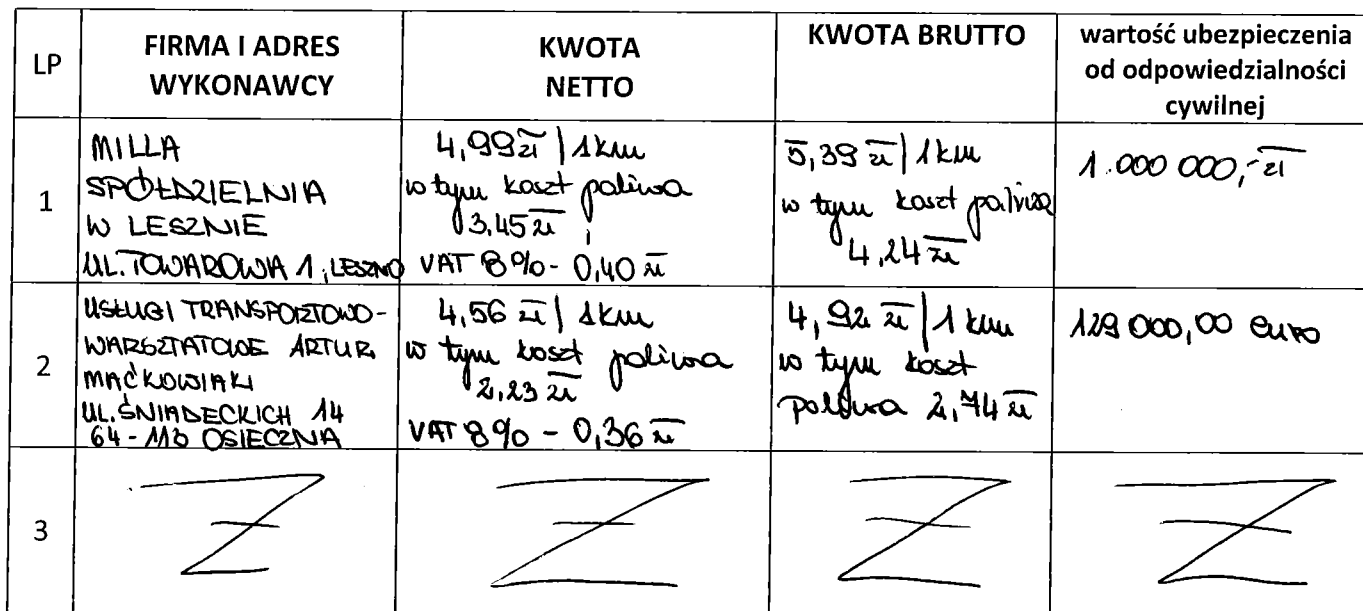 LP
FIRMA I ADRES
WYKONAWCY
KWOTA
NETTO
KWOTA BRUTTO
wartość ubezpieczenia
od odpowiedzialności
cywilnej
1
MILLA
SPÓŁDZIELNIA
W LESZNIE
UL. TOWAROWA 1, LESZNO
4,99 zł / 1 km
w tym koszt paliwa
3,45 zł ;
VAT 8% - 0,40 zł
5,39 zł / 1 km
w tym koszt paliwa
4,24 zł
1.000 000,- zł
2
USŁUGI TRANSPORTOWO-
WARSZTATOWE ARTUR
MAĆKOWIAK
UL. ŚNIADECKICH 14
64-113 OSIECZNA
4,56 zł / 1 km
w tym koszt paliwa
2,23 zł
VAT 8% - 0,36 zł
4,92 zł / 1 km
w tym koszt
paliwa 2,74 zł
129 000,00 euro
3